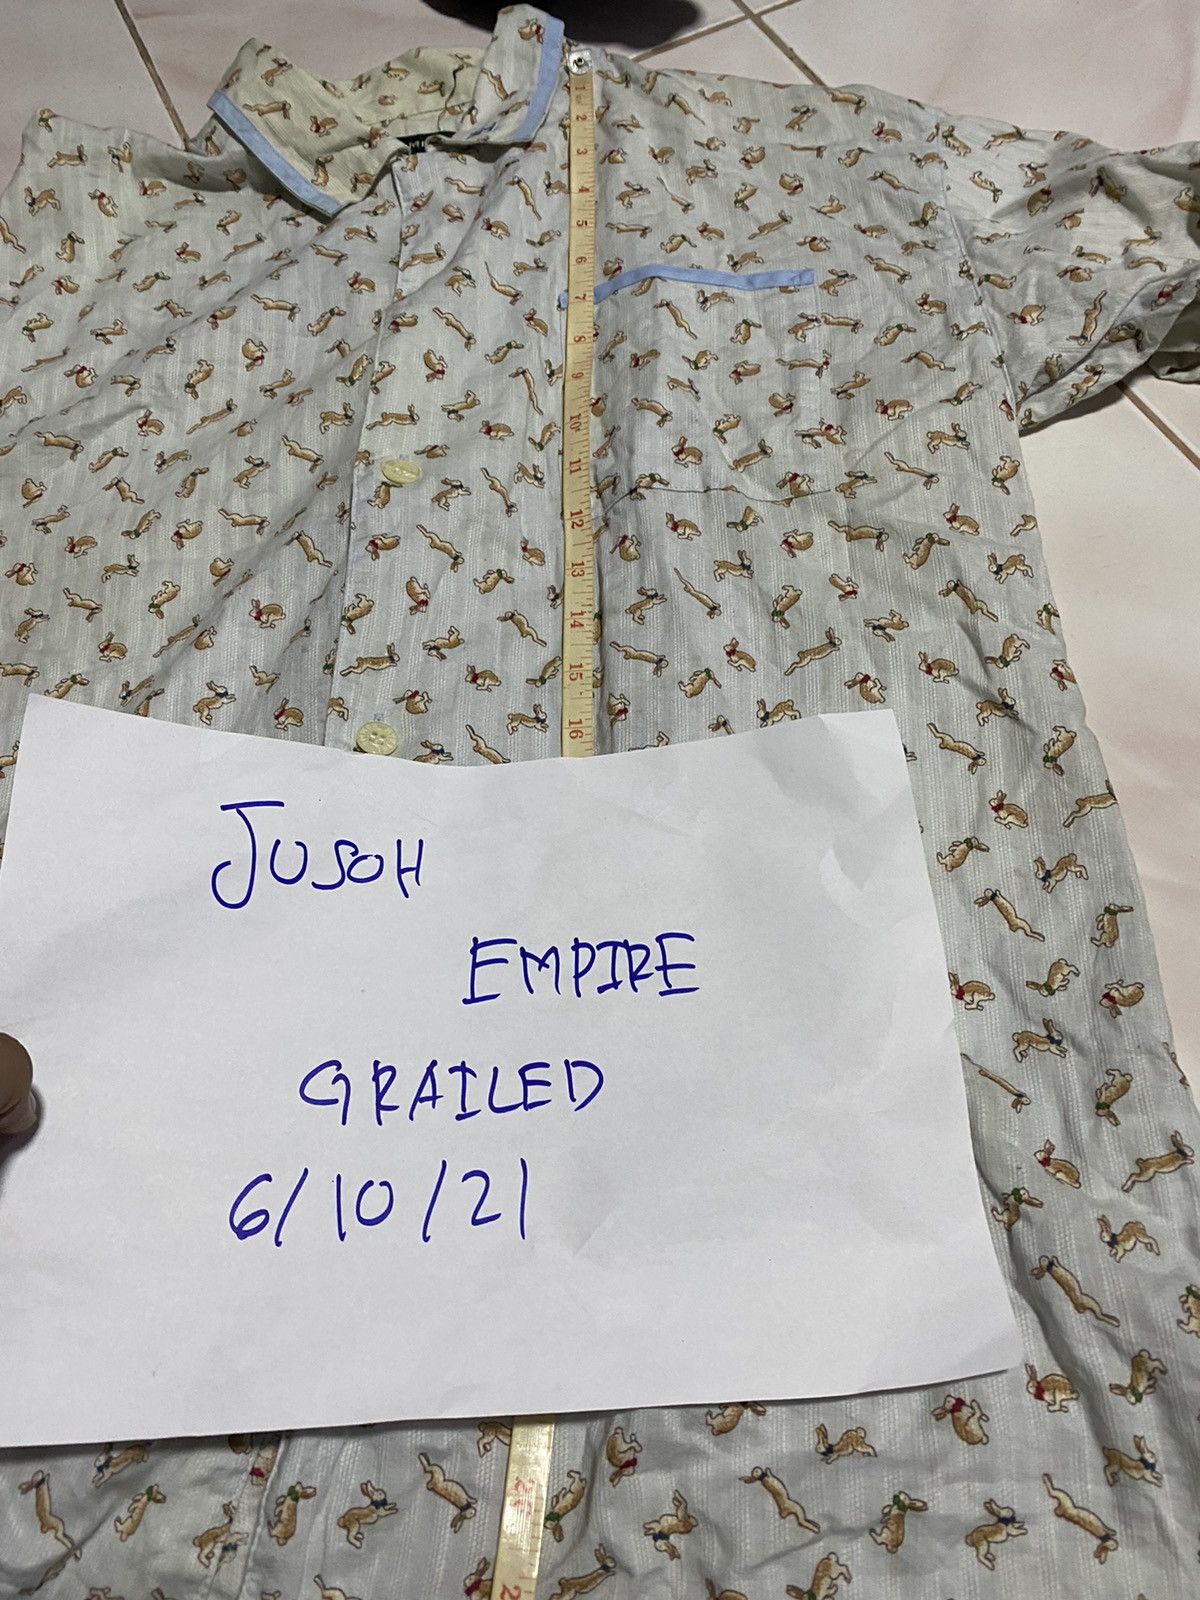 1
2
3
4
5
6
7
8
9
10
11
12
13
14
15
16
JUSOH
EMPIRE
GRAILED
6/10/21